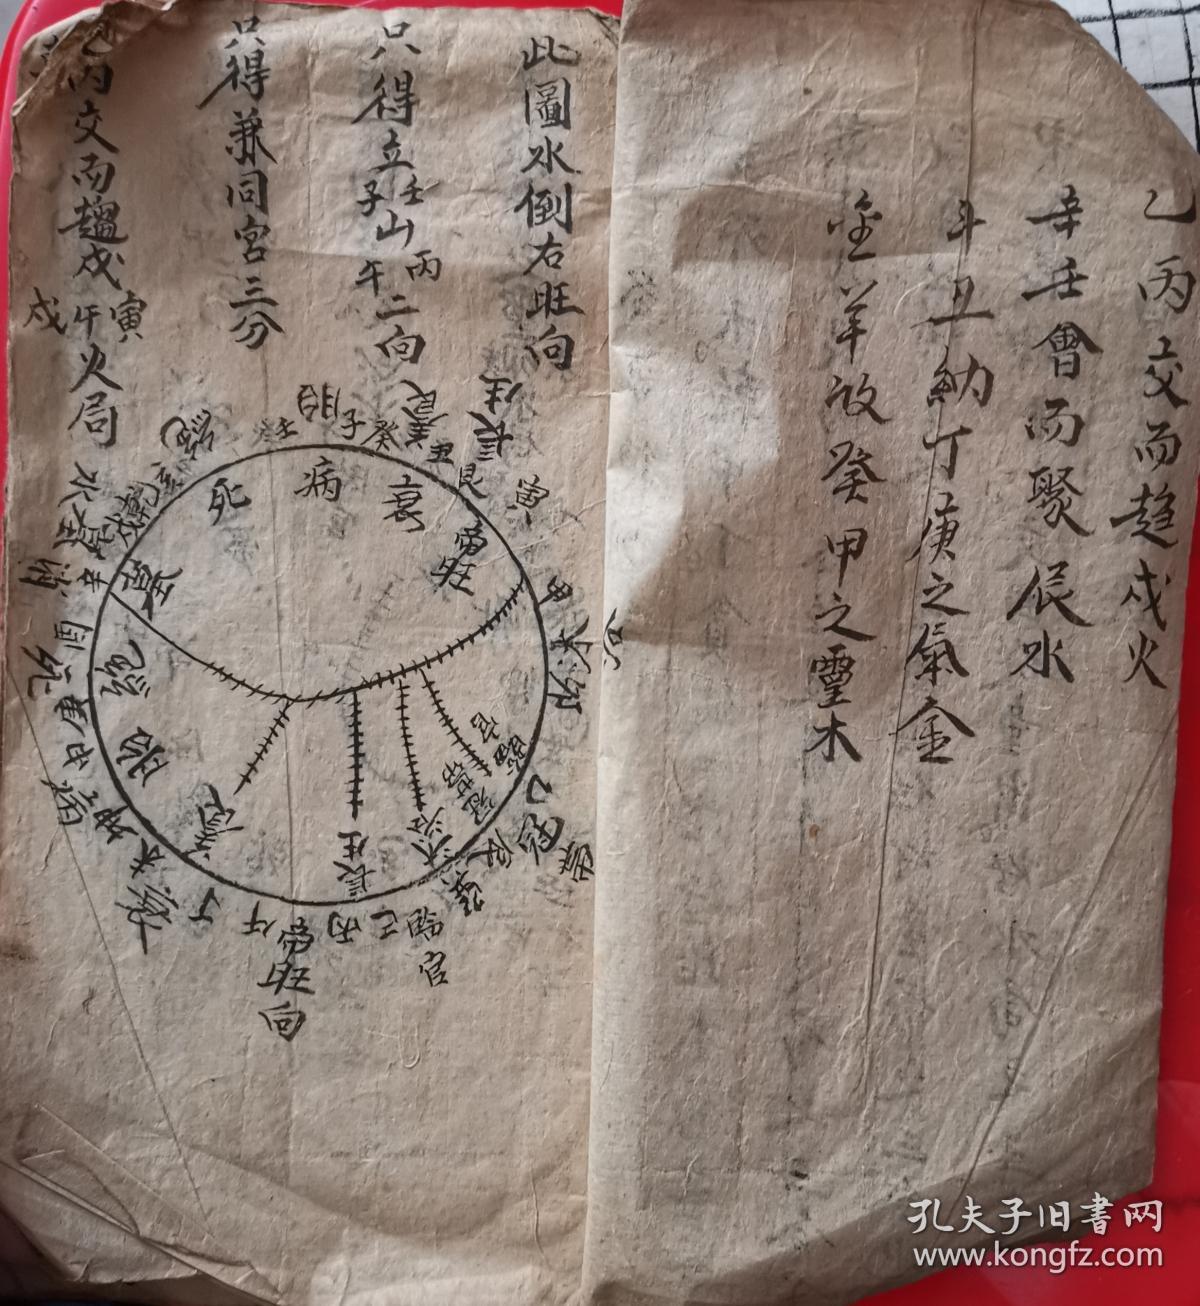 乙丙交而趋戍火
辛壬會而聚辰水
斗丑納丁庚之氣金
金羊收癸甲之靈木
此圖水倒右旺向
只得立壬子山丙午二向
只得兼同宮三分
乙丙交而趨戍寅午戍火局
病
死
衰
帝旺
墓
絕
胎
養
長生
沐浴
冠帶
臨官
壬
子
癸
丑
艮
寅
甲
卯
乙
丙
午
丁
未
坤
申
庚
辛
水
長生
養
胎
絕
帝旺向
官
衰
死
孔夫子旧书网
www.kongfz.com